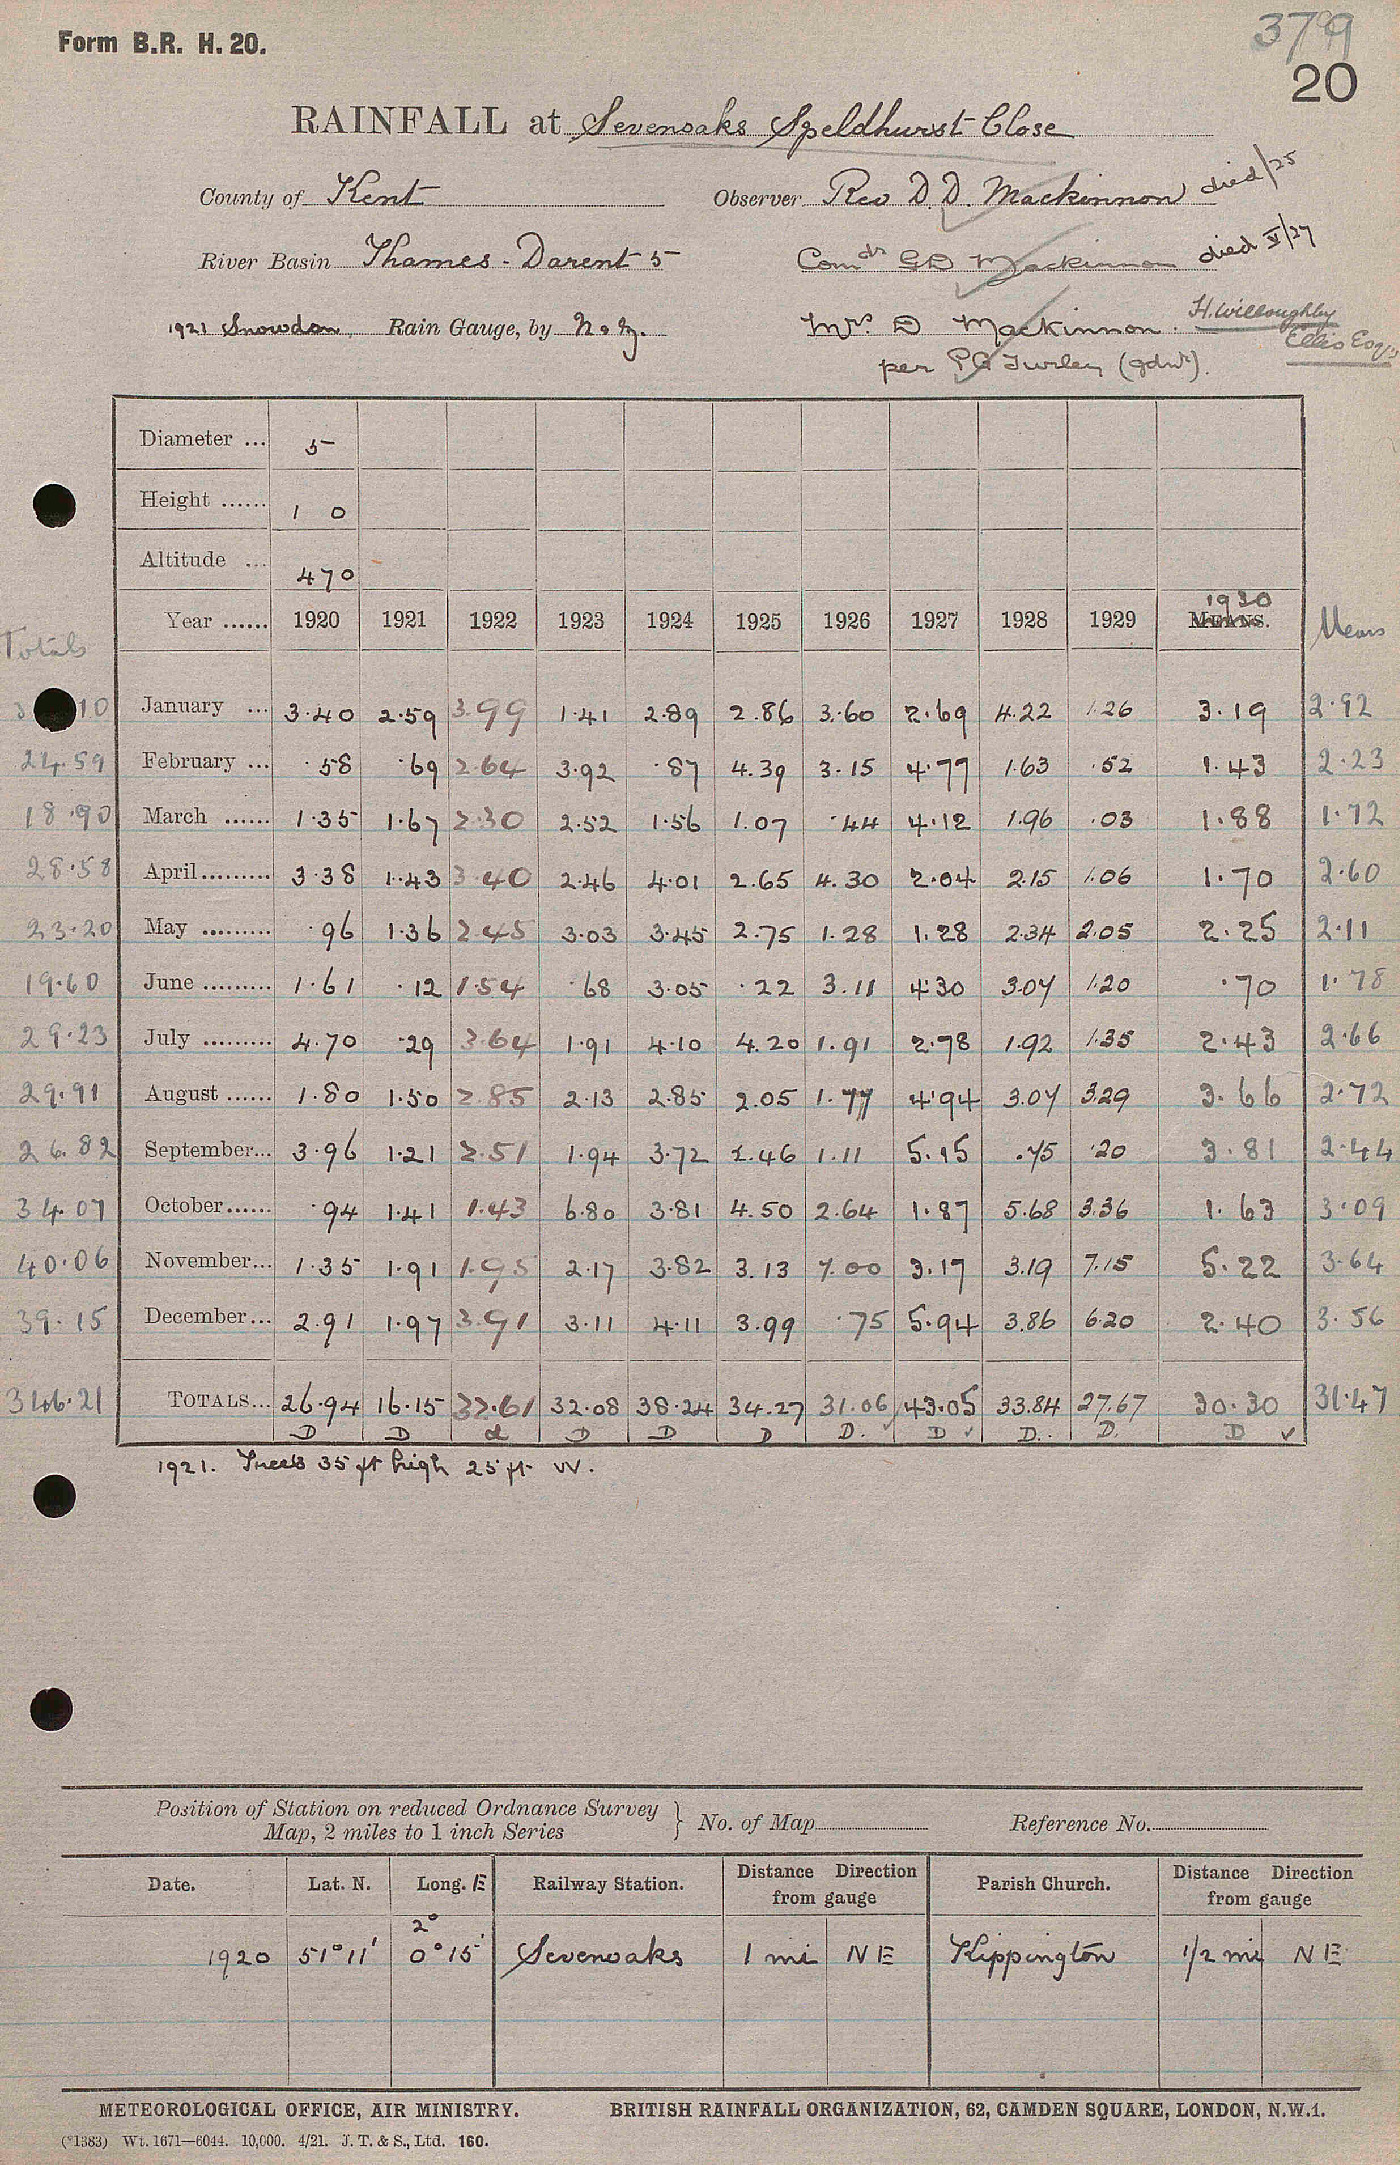 Form B.R. H. 20.
3799
20
RAINFALL at Sevenoaks Speldhurst Close
County of Kent Observer Rev D. D. Mackinnon died/25
River Basin Thames - Darent 5 Comdr GD Mackinnon died V/27
1921 Snowdon Rain Gauge, by N & Z. Mrs D Mackinnon. H. Willoughby Ellis Esqr
per PG Turley (gdnr).
Diameter ... 5
Height ...... 1 0
Altitude ... 470
Totals Year ...... 1920 1921 1922 1923 1924 1925 1926 1927 1928 1929 1930 MEANS. Means
3 10 January ... 3.40 2.59 3.99 1.41 2.89 2.86 3.60 2.69 4.22 1.26 3.19 2.92
24.59 February ... .58 .69 2.64 3.92 .87 4.39 3.15 4.77 1.63 .52 1.43 2.23
18.90 March ...... 1.35 1.67 2.30 2.52 1.56 1.07 .44 4.12 1.96 .03 1.88 1.72
28.58 April......... 3.38 1.43 3.40 2.46 4.01 2.65 4.30 2.04 2.15 1.06 1.70 2.60
23.20 May ......... .96 1.36 2.45 3.03 3.45 2.75 1.28 1.28 2.34 2.05 2.25 2.11
19.60 June ......... 1.61 .12 1.54 .68 3.05 .22 3.11 4.30 3.07 1.20 .70 1.78
29.23 July ......... 4.70 .29 3.64 1.91 4.10 4.20 1.91 2.78 1.92 1.35 2.43 2.66
29.91 August ...... 1.80 1.50 2.85 2.13 2.85 2.05 1.77 4.94 3.07 3.29 3.66 2.72
26.82 September... 3.96 1.21 2.51 1.94 3.72 2.46 1.11 5.15 .75 .20 3.81 2.44
34.07 October...... .94 1.41 1.43 6.80 3.81 4.50 2.64 1.87 5.68 3.36 1.63 3.09
40.06 November... 1.35 1.91 1.95 2.17 3.82 3.13 7.00 3.17 3.19 7.15 5.22 3.64
39.15 December... 2.91 1.97 3.91 3.11 4.11 3.99 .75 5.94 3.86 6.20 2.40 3.56
346.21 TOTALS... 26.94 16.15 32.61 32.08 38.24 34.27 31.06 43.05 33.84 27.67 30.30 31.47
D D d D D D D. D D. D. D
1921. Trees 35 ft high 25 ft W.
Position of Station on reduced Ordnance Survey
Map, 2 miles to 1 inch Series } No. of Map Reference No.
Date. Lat. N. Long. E Railway Station. Distance Direction from gauge Parish Church. Distance Direction from gauge
2°
1920 51°11' 0°15' Sevenoaks 1 mi NE Kippington 1/2 mi NE
METEOROLOGICAL OFFICE, AIR MINISTRY. BRITISH RAINFALL ORGANIZATION, 62, CAMDEN SQUARE, LONDON, N.W.1.
(*1383) Wt. 1671—6044. 10,000. 4/21. J. T. & S., Ltd. 160.